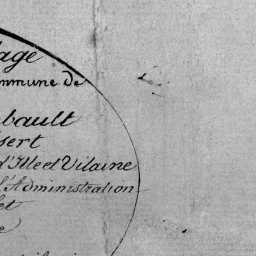 lage
ommune de
bault
sert
d'Ille et Vilaine
l'Administration
et